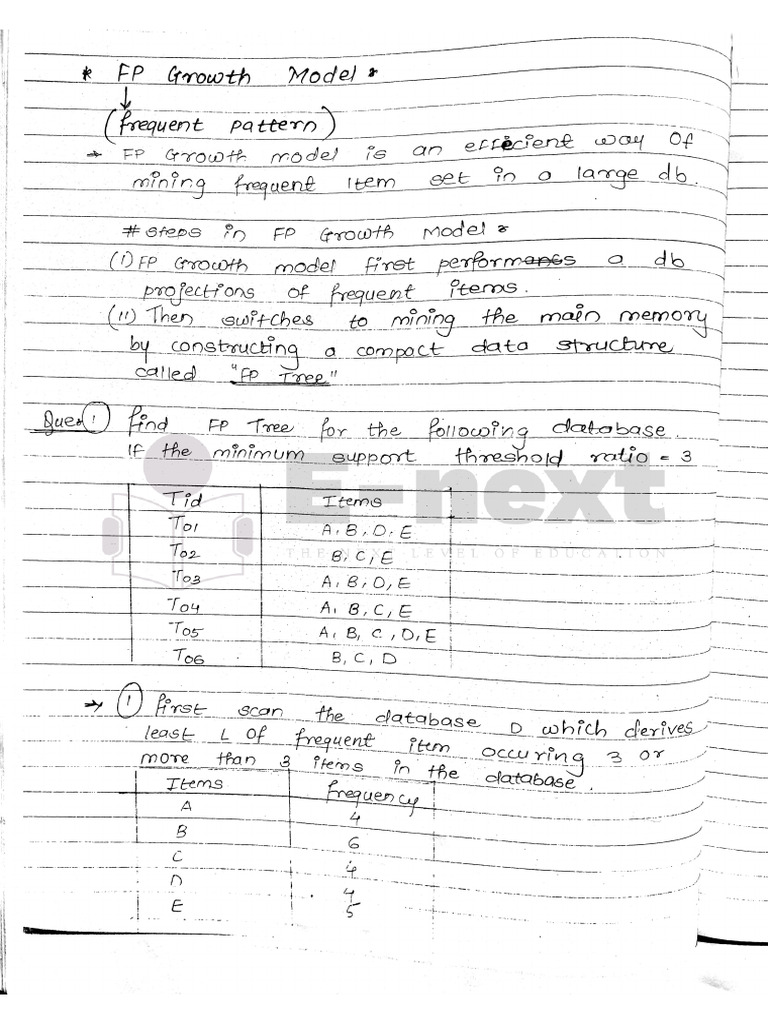 * FP Growth Model :
(frequent pattern)
→ FP Growth model is an efficient way of
mining frequent item set in a large db.
# Steps in FP Growth Model :
(I) FP Growth model first performances a db
projections of frequent items.
(II) Then switches to mining the main memory
by constructing a compact data structure
called "FP Tree"
Ques 1 find FP Tree for the following database.
If the minimum support threshold ratio = 3
E-next
THE NEXT LEVEL OF EDUCATION
Tid Items
T01 A, B, D, E
T02 B, C, E
T03 A, B, D, E
T04 A, B, C, E
T05 A, B, C, D, E
T06 B, C, D
→ (1) first scan the database D which derives
least L of frequent item occuring 3 or
more than 3 items in the database.
Items frequency
A 4
B 6
C 4
D 4
E 5